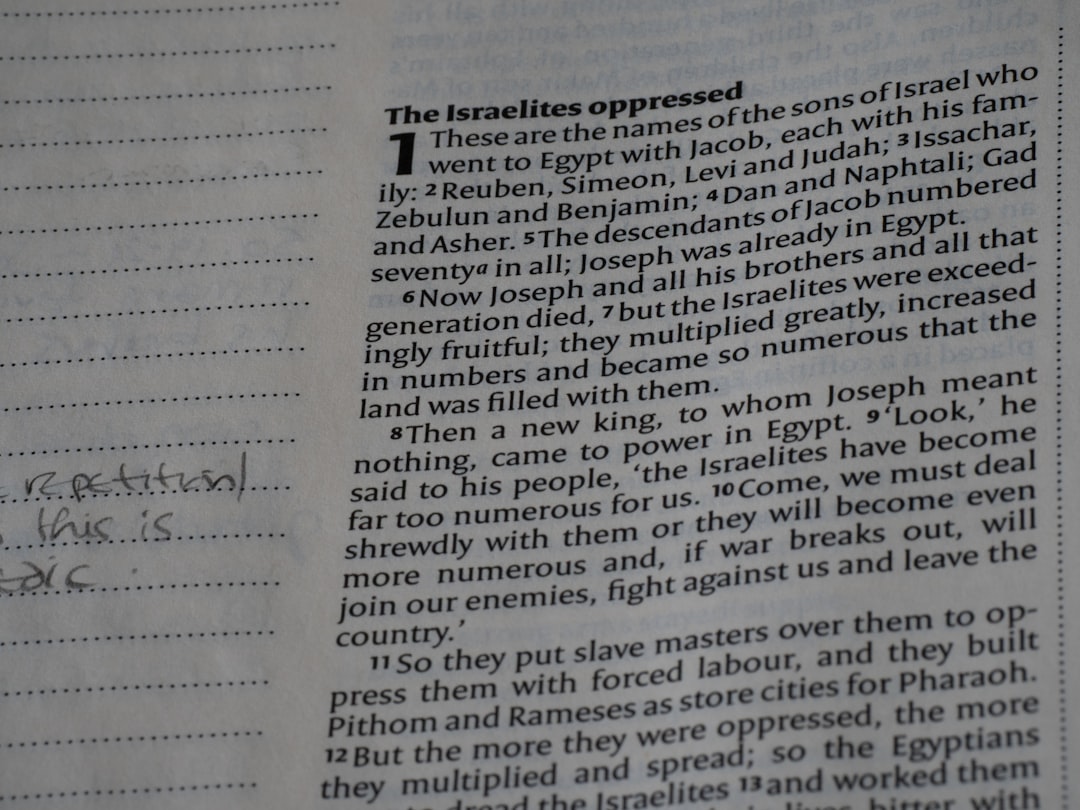 repetition/
this is
The Israelites oppressed
1 These are the names of the sons of Israel who
went to Egypt with Jacob, each with his fam-
ily: 2 Reuben, Simeon, Levi and Judah; 3 Issachar,
Zebulun and Benjamin; 4 Dan and Naphtali; Gad
and Asher. 5 The descendants of Jacob numbered
seventy a in all; Joseph was already in Egypt.
6 Now Joseph and all his brothers and all that
generation died, 7 but the Israelites were exceed-
ingly fruitful; they multiplied greatly, increased
in numbers and became so numerous that the
land was filled with them.
8 Then a new king, to whom Joseph meant
nothing, came to power in Egypt. 9 ‘Look,’ he
said to his people, ‘the Israelites have become
far too numerous for us. 10 Come, we must deal
shrewdly with them or they will become even
more numerous and, if war breaks out, will
join our enemies, fight against us and leave the
country.’
11 So they put slave masters over them to op-
press them with forced labour, and they built
Pithom and Rameses as store cities for Pharaoh.
12 But the more they were oppressed, the more
they multiplied and spread; so the Egyptians
to dread the Israelites 13 and worked them
bitter with